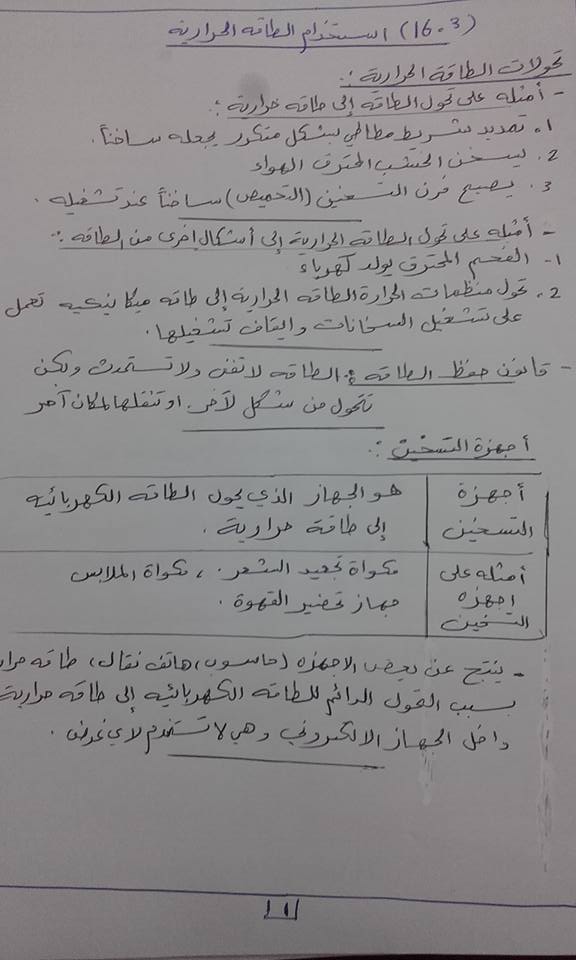 (16.3) استخدام الطاقه الحرارية
تحولات الطاقة الحرارية :.
- أمثله على تحول الطاقه إلى طاقه حرارية :.
1. تمديد شريط مطاطي بشكل متكرر يجعله ساخناً.
2. يسخن الخشب المحترق الهواء
3. يصبح فرن التسخين (التحميص) ساخناً عند تشغيله .
- أمثله على تحول الطاقه الحرارية إلى أشكال اخرى من الطاقه :.
1- الفحم المحترق يولد كهرباء
2. تحول منظمات الحرارة الطاقه الحرارية إلى طاقه ميكانيكيه تعمل
على تشغيل السخانات وايقاف تشغيلها.
- قانون حفظ الطاقه : الطاقه لا تفنى ولا تستحدث ولكن
تتحول من شكل لآخر. او تنقلها لمكان آخر
أجهزة التسخين :.
أجهزة التسخين
هو الجهاز الذي يحول الطاقه الكهربائيه
إلى طاقة حرارية .
أمثله على اجهزه التسخين
مكواة تجعيد الشعر . ، مكواة الملابس
جهاز تحضير القهوة .
- ينتج عن بعض الاجهزه (حاسوب، هاتف نقال، طاقه حرار
بسبب التحول الدائم للطاقه الكهربائيه إلى طاقه حرارية
داخل الجهاز الالكتروني وهي لا تستخدم لأي غرض .